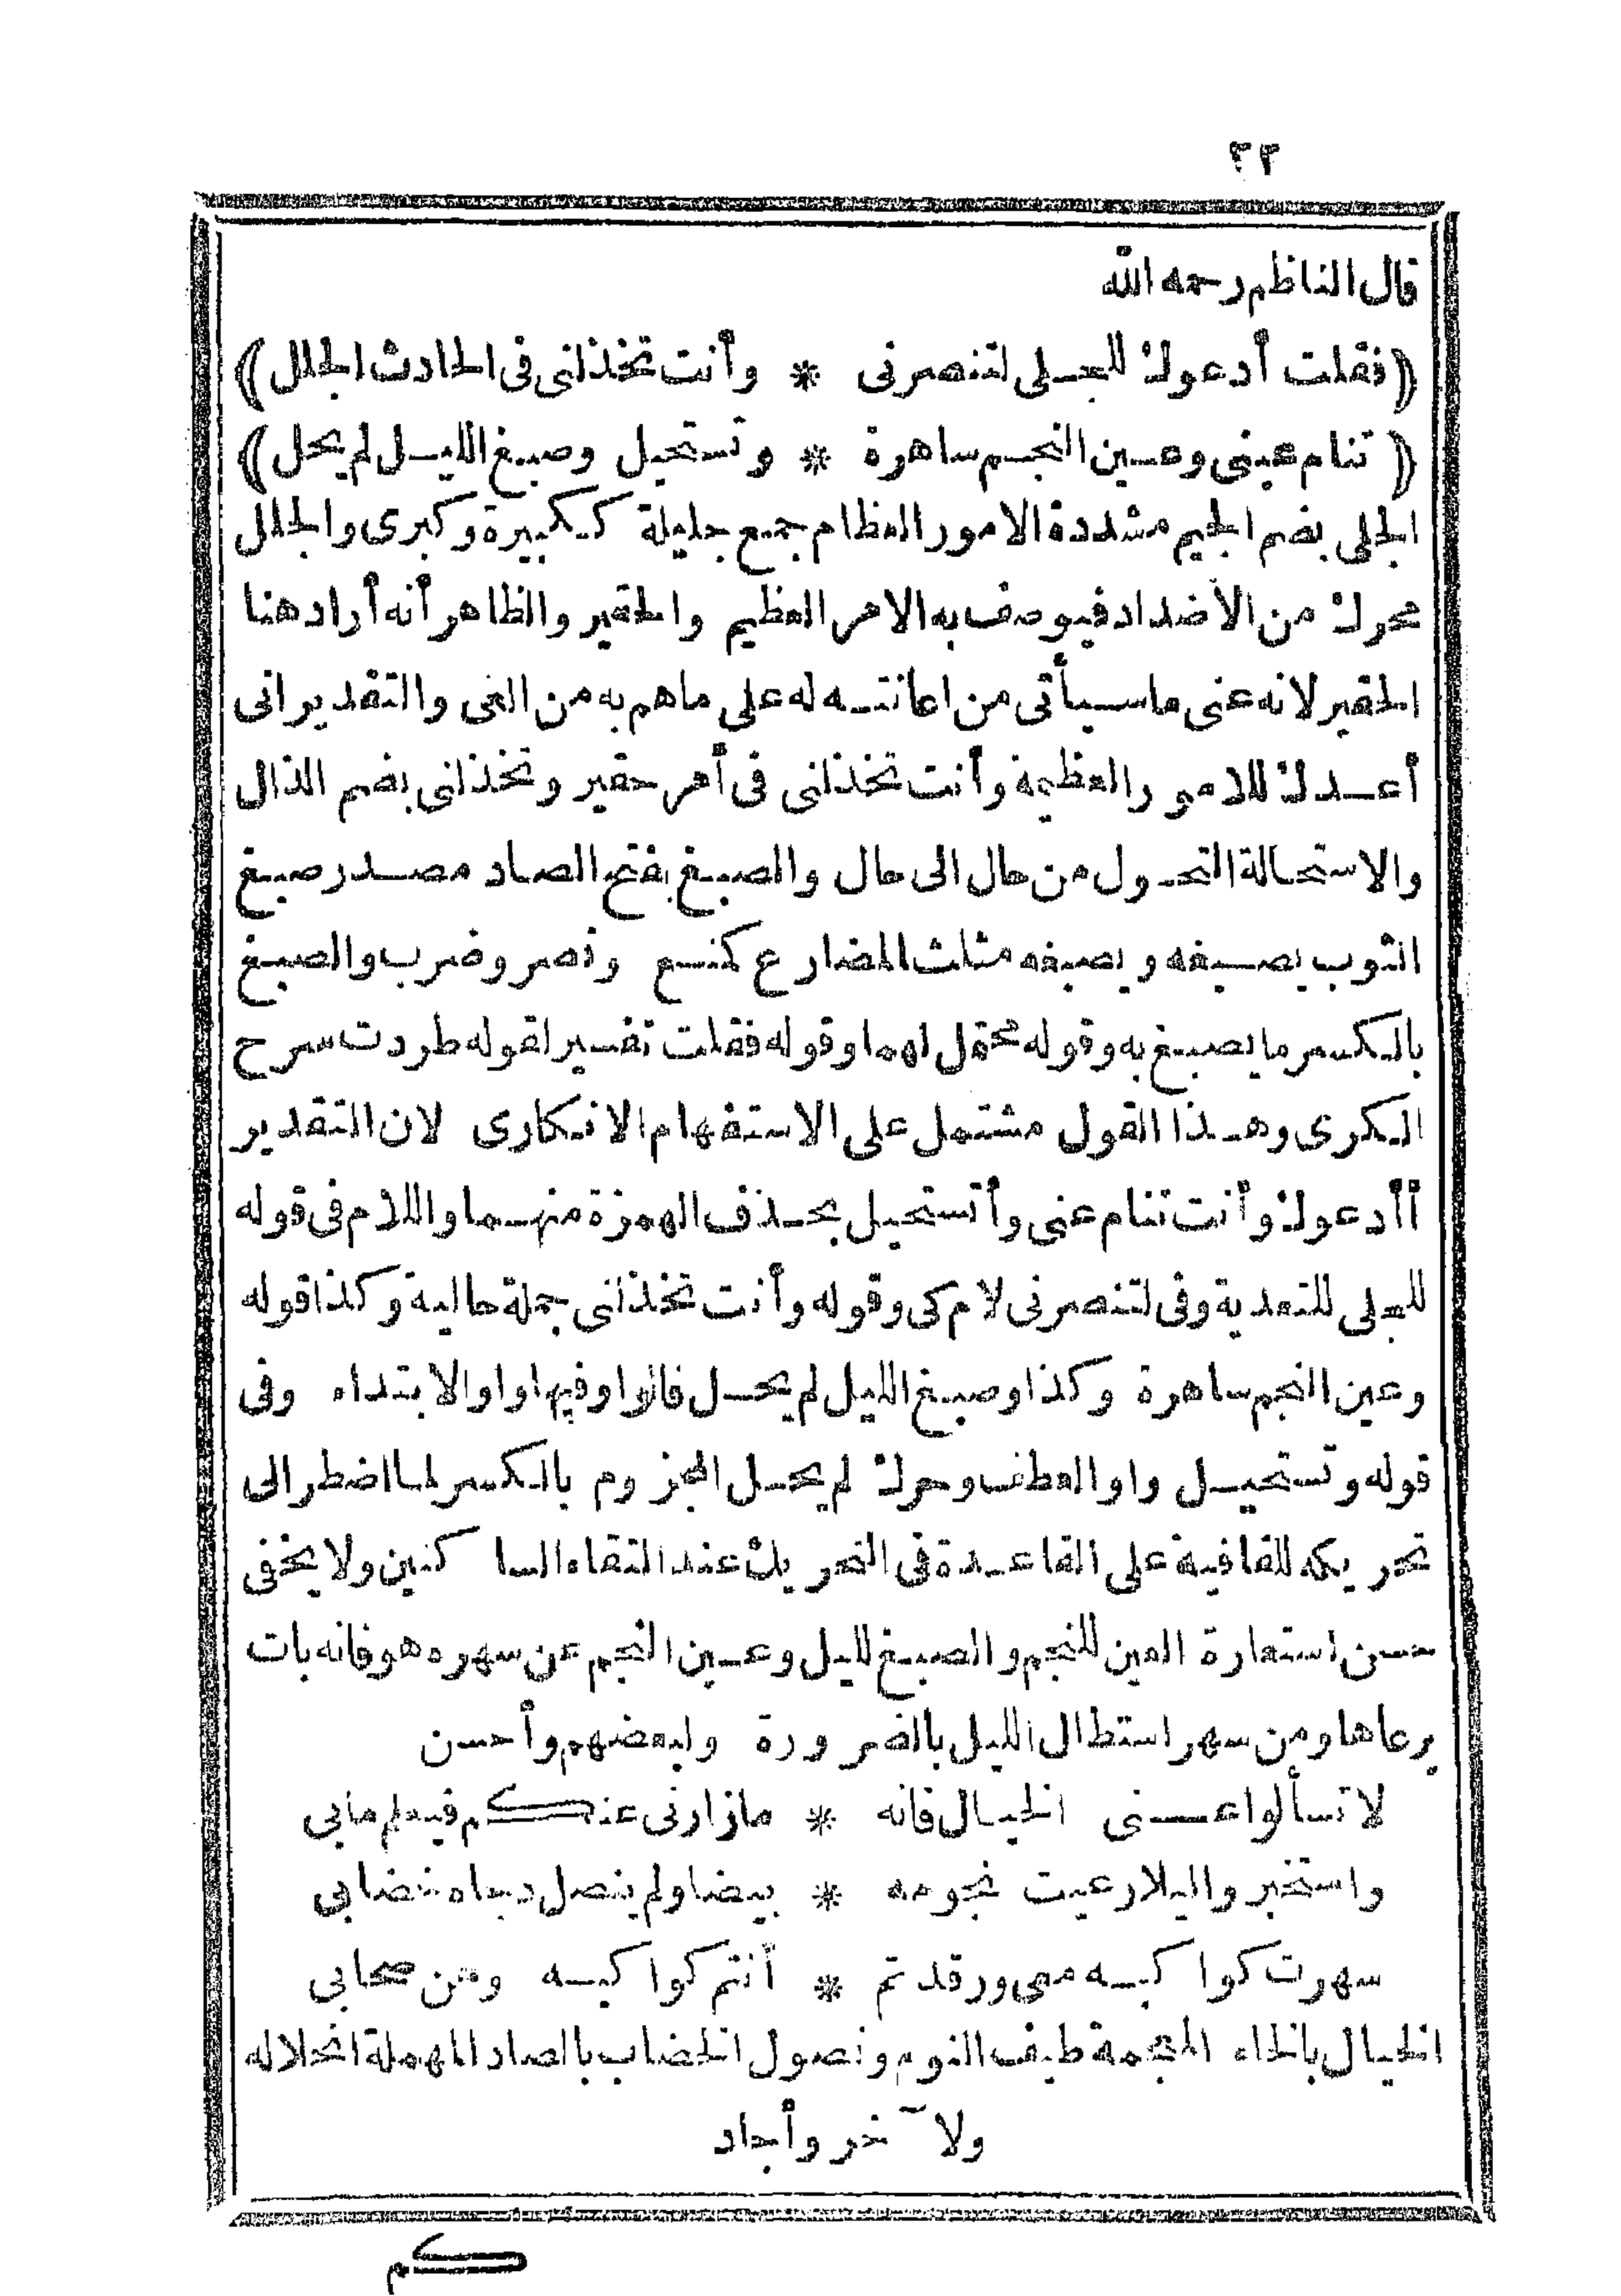 ٢٢
قال الناظم رحمه الله
(فقلت أدعوك للجلى لتنصرنى * وأنت تخذلنى فى الحادث الجلل)
(تنام عينى وعين النجم ساهرة * وتستحيل وصبغ الليل لم يحل)
الجلى بضم الجيم مشددة الامور العظام جمع جليلة ككبيرة وكبرى والجلل
محرك من الأضداد فيوصف به الامر العظيم والحقير والظاهر أنه أراد هنا
الحقير لانه عنى ما سيأتى من اعانته له على ما هم به من الغى والتقدير انى
أعدك للامور العظيمة وأنت تخذلنى فى أمر حقير وتخذلنى بضم الذال
والاستحالة التحول من حال الى حال والصبغ بفتح الصاد مصدر صبغ
الثوب يصبغه ويصبغه مثلث المضارع كمنع ونصر وضرب والصبغ
بالكسر ما يصبغ به وقوله محتمل لهما وقوله فقلت تفسير لقوله طردت سرح
الكرى وهذا القول مشتمل على الاستفهام الانكارى لان التقدير
أأدعوك وأنت تنام عنى وأتستحيل بحذف الهمزة منهما واللام فى قوله
للجلى للتعدية وفى لتنصرنى لام كى وقوله وأنت تخذلنى جملة حالية وكذا قوله
وعين النجم ساهرة وكذا وصبغ الليل لم يحل فالواو فيها واو الابتداء وفى
قوله وتستحيل واو العطف وحرك لم يحل المجزوم بالكسر لما اضطر الى
تحريكه للقافية على القاعدة فى التحريك عند التقاء الساكنين ولا يخفى
حسن استعارة العين للنجم والصبغ لليل وعين النجم عن سهره هو فانه بات
يرعاها ومن سهر استطال الليل بالضرورة ولبعضهم وأحسن
لا تسألوا عنى الخيال فانه * ما زارنى عنكم فيعلم ما بى
واستخبروا ليلا رعيت نجومه * بيضا ولم ينصل دجاه خضابى
سهرت كواكبه معى ورقدتم * أنتم كواكبه ومن صحابى
الخيال بالخاء المعجمة طيف النوم ونصول الخضاب بالصاد المهملة انحلاله
ولآخر وأجاد
كم